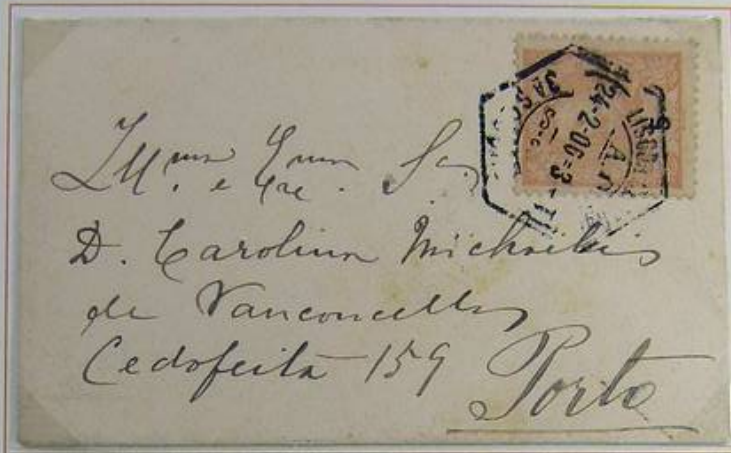 LISBOA
24-2-06=3
Ill.ma e Exma. Sra
D. Carolina Michaëlis
de Vasconcellos
Cedofeita 159
Porto